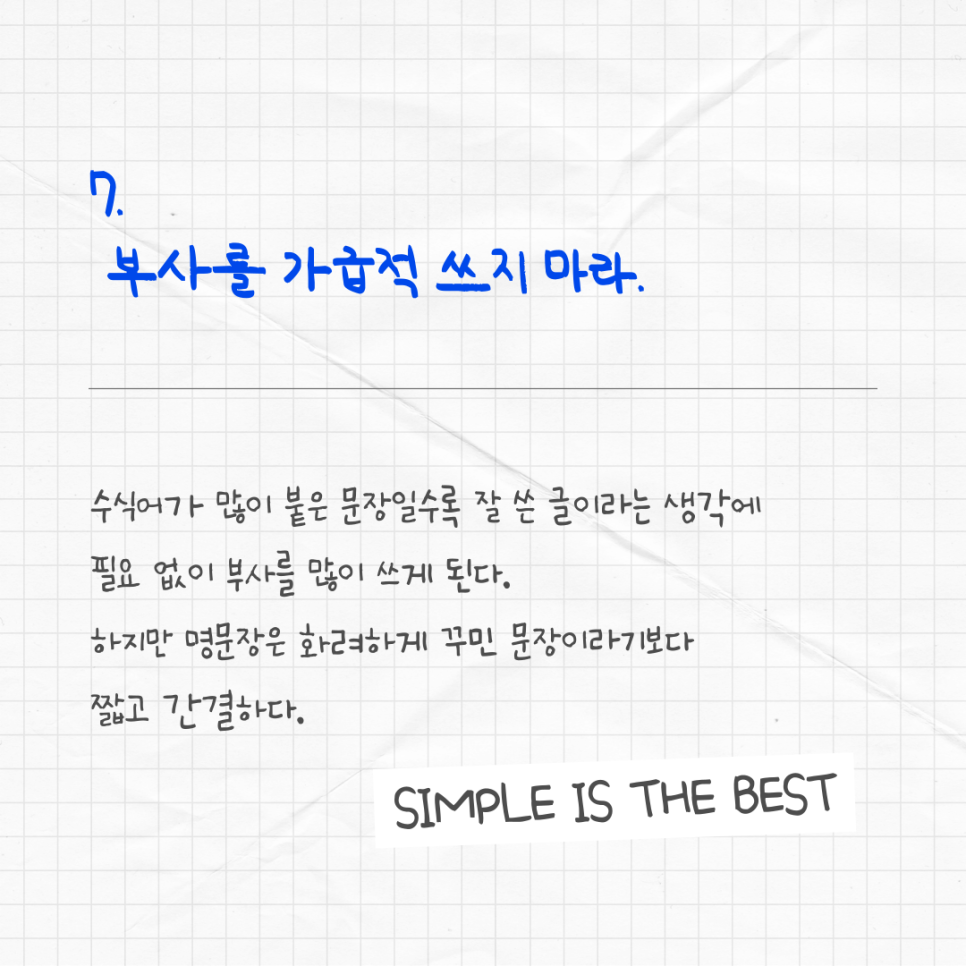 7.
부사를 가급적 쓰지 마라.
수식어가 많이 붙은 문장일수록 잘 쓴 글이라는 생각에
필요 없이 부사를 많이 쓰게 된다.
하지만 명문장은 화려하게 꾸민 문장이라기보다
짧고 간결하다.
SIMPLE IS THE BEST